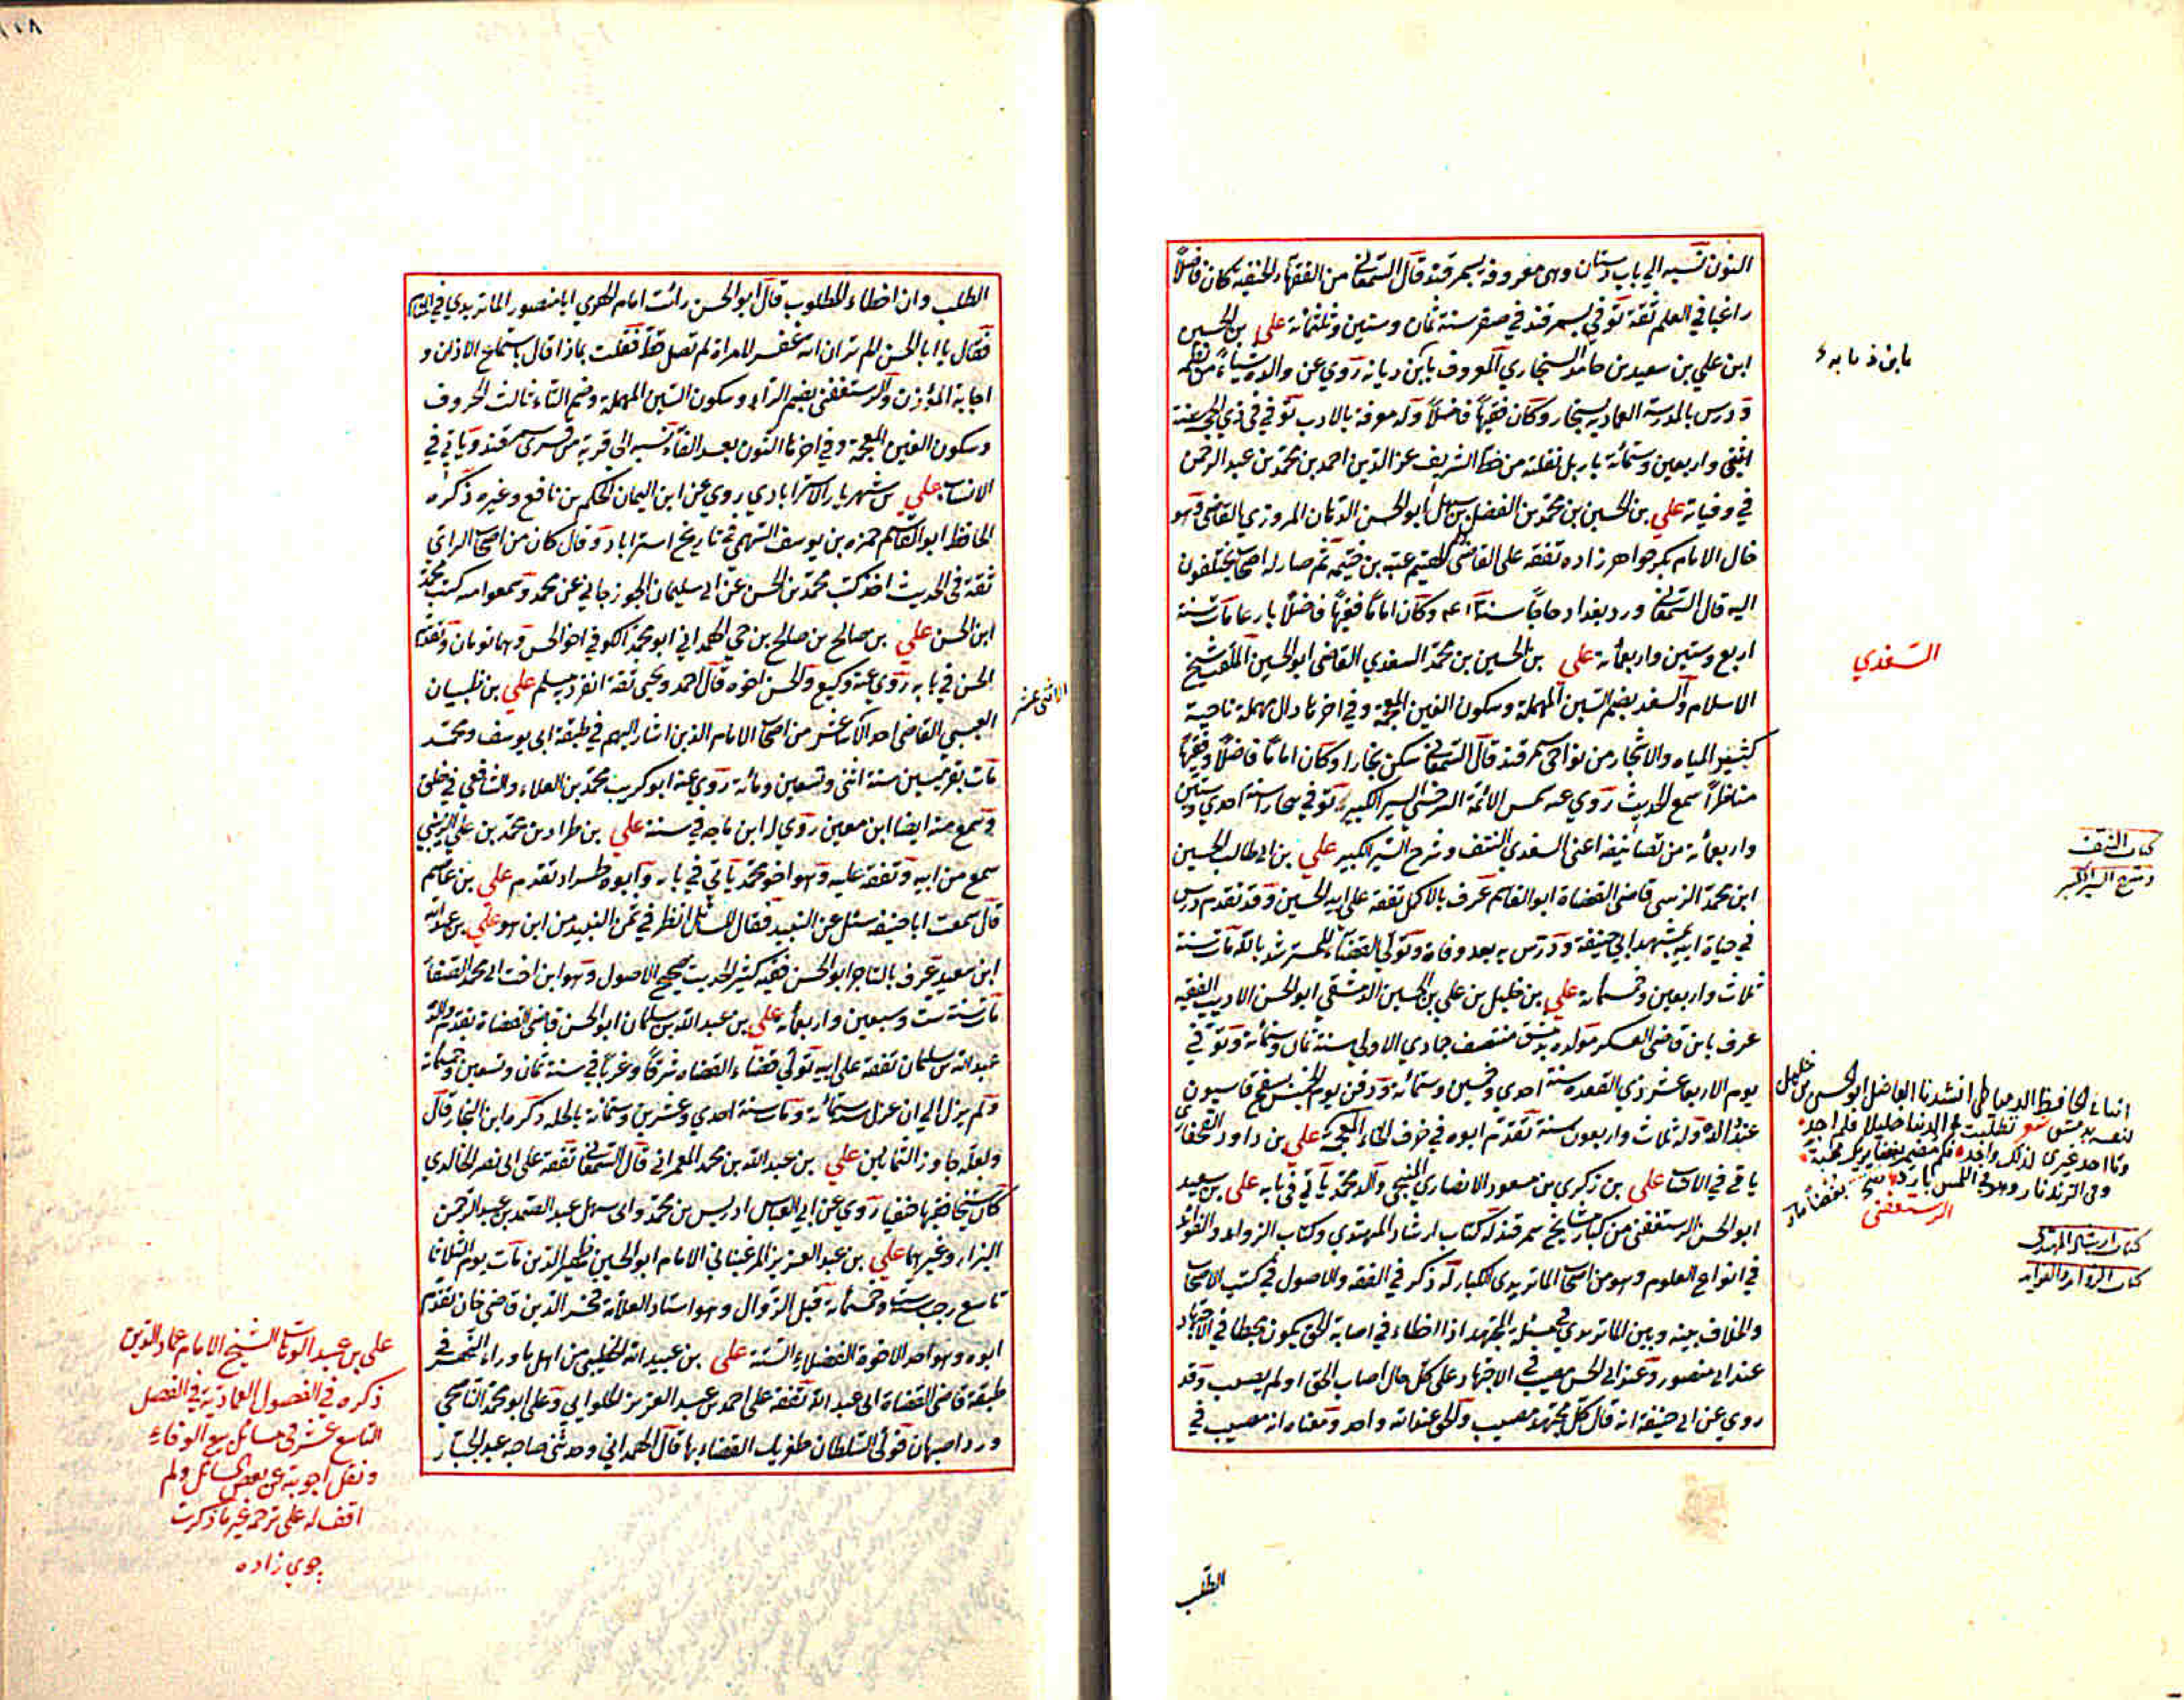 النون نسبه الي باب دستان وهى معروفة بسمرقند قال السمعانى من الفقهاء الحنفيه كان فاضلاً
راغبا في العلم ثقة توفي بسمرقند في صفر سنة ثمان وستين وثلثمائة علي بن الحسين
ابن علي بن سعيد بن حامد السنجاري المعروف بابن ديابه روي عن والده شياء من نظمه
ودرس بالمدرسة العماديه بسنجار وكان فقيهاً فاضلاً وله معرفة بالادب توفي في ذي الحجة سنة
اثنى واربعين وستمائة باربل نقلته من خط الشريف عز الدين احمد بن محمد بن عبد الرحمن
في وفياته علي بن الحسين بن محمد بن الفضل بن سهل ابو الحسن الدهان المروزي القاضى وهو
خال الامام بكر خواهر زاده تفقه على القاضى الهيثم عتبه بن خيثمه ثم صار له اصحاب يختلفون
اليه قال السمعانى ورد بغداد حاجاً سنة وكان اماماً فقيهاً فاضلاً بارعا مات سنة
اربع وستين واربعمائة علي بن الحسين بن محمد السغدي القاضى ابو الحسين الملقب شيخ
الاسلام والسغد بضم السين المهملة وسكون الغين المعجمة وفي اخرها دال مهملة ناحية
كثير المياه والاشجار من نواحى سمرقند قال السمعانى سكن بخارا وكان اماماً فاضلاً وفقيهاً
مناظراً سمع الحديث روي عنه شمس الائمة السرخسى السير الكبير توفي ببخارا سنة احدي وستين
واربعمائة من تصانيفه اعنى السغدي النتف وشرح السير الكبير علي بن ابي طالب الحسين
ابن محمد الزينبى قاضى القضاة ابو القاسم عرف بالاكمل تفقه على ابيه الحسين وقد تقدم درس
في حياة ابيه بمشهد ابي حنيفة ودرس به بعد وفاته وتولي القضاء للمسترشد بالله مات سنة
ثلاث واربعين وخمسمائة علي بن خليل بن علي بن الحسين الدمشقي ابو الحسن الاديب الفقيه
عرف بابن قاضى العسكر مولده بدمشق منتصف جمادي الاولي سنة ثمان وستمائة وتوفي
يوم الاربعا عشر ذي القعده سنة احدي وخمسين وستمائة ودفن يوم الخميس بسفح قاسيون
عند والده وله ثلاث واربعون سنة تقدم ابوه في حرف الخاء المعجمة علي بن داود القحفازى
ياتي في الانساب علي بن زكري بن مسعود الانصاري المنبجي والد محمد ياتي في بابه علي بن سعيد
ابو الحسن الرستغفنى من كبار مشايخ سمرقند له كتاب ارشاد المهتدي وكتاب الزوايد والفوائد
في انواع العلوم وهو من اصحاب الماتريدى الكبار له ذكر في الفقه والاصول في كتب الاصحاب
والخلاف بينه وبين الماتريدى في مسئلة المجتهد اذا اخطاء في اصابة الحق يكون مخطيا في الاجتهاد
عند ابي منصور وعند ابي الحسن مصيب في الاجتهاد على كل حال اصاب الحق او لم يصب وقد
روي عن ابي حنيفة انه قال كل مجتهد مصيب والحق عند الله واحد ومعناه انه مصيب في
الطلب
السغدي
كتاب النتف
وشرح السير الكبير
انباء الحافظ الدمياطى انشدنا الفاضل ابو الحسن بن خليل
لنفسه بدمشق شعر تطلبت في الدنيا خليلا فلم اجد
وما احد غيرى لذلك واجد فكم مضمر بغضا يريك محبة
وفى الزند نار وهو في اللمس بارد
الرستغفنى
كتاب ارشاد المهتدى
كتاب الزوايد والفوايد
الطلب وان اخطاء المطلوب قال ابو الحسن رائت امام الهدي ابا منصور الماتريدي في المنام
فقال يا ابا الحسن الم تر ان الله غفر لامراة لم تصل قط فقلت بماذا قال باستماع الاذان و
اجابة المؤذن والرستغفنى بضم الراء وسكون السين المهملة وضم التاء ثالث الحروف
وسكون الغين المعجمة وفي اخرها النون بعد الفاء نسبه الى قرية من قرى سمرقند وياتي في
الانساب علي بن شهريار الاستراباذي يروي عن ابن اليمان الحكم بن نافع وغيره ذكره
الحافظ ابو القاسم حمزه بن يوسف السهمي في تاريخ استراباد وقال كان من اصحاب الراي
ثقة في الحديث اخذ كتب محمد بن الحسن عن ابي سليمان الجوزجاني عن محمد وسمعوا منه كتب محمد
ابن الحسن علي بن صالح بن صالح بن حي الهمداني ابو محمد الكوفي اخو الحسن وهما توءمان وتقدم
الحسن في بابه روي عنه وكيع والحسن اخوه قال احمد ويحيى ثقة انفرد به مسلم علي بن ظبيان
العبسي القاضى احد الاثنى عشر من اصحاب الامام الذين اشار اليهم في طبقة ابى يوسف ومحمد
مات بقرميسين سنة اثنى وتسعين ومائة روي عنه ابو كريب محمد بن العلاء والشافعي في خلق
وسمع منه ايضا ابن معين روي له ابن ماجه في سننه علي بن طراد بن محمد بن علي الزينبي
سمع من ابيه وتفقه عليه وهو اخو محمد ياتي في بابه وابوه طراد تقدم علي بن عاصم
قال سمعت ابا حنيفه سئل عن النبيذ فقال للسائل انظر في ثمن النبيذ من اين هو علي بن عبد الله
ابن سعيد عرف بالتاجر ابو الحسن فقيه كثير الحديث صحيح الاصول وهو ابن اخت ابي محمد
مات سنة ست وسبعين واربعمائة علي بن عبد الله بن سلمان ابو الحسن قاضى القضاة تقدم والده
عبد الله بن سلمان تفقه على ابيه تولي قضاء القضاه شرقاً وغرباً في سنة ثمان وتسعين وخمسمائة
ولم يزل الي ان عزل سنة ستمائة ومات سنة احدي وعشرين وستمائة بالحله ذكره ابن النجار قال
ولعله جاوز الثمانين علي بن عبد الله بن محمد العمراني قال السمعانى تفقه على ابى نصر الخالدي
كان شيخا فقيها حنفيا روي عن ابي العباس ادريس بن محمد وابى سهل عبد الصمد بن عبد الرحمن
البزار وغيرهما علي بن عبد العزيز المرغيناني الامام ابو الحسين ظهير الدين مات يوم الثلاثا
تاسع رجب سنة ست وخمسمائة قبل الزوال وهو استاد العلامة فخر الدين قاضى خان تقدم
ابوه وهو احد الاخوة الفضلاء الستة على بن عبيد الله الخطيبى من اهل ماوراء النهر في
طبقة قاضى القضاة ابى عبد الله تفقه على احمد بن عبد العزيز الحلوايي وعلى ابو محمد الناصحي
ورد اصبهان فولى السلطان طغربك القضاء بها قال الهمداني وحدثنى صاحبه عبد الجبار
الاثنى عشر
علي بن عبد الوهاب الشيخ الامام عماد الدين
ذكره في الفصول العمادية في الفصل
التاسع عشر في مسائل بيع الوفاء
ونقل اجوبته عن بعض المسائل ولم
اقف له على ترجمة غير ما ذكرت
جوي زاده